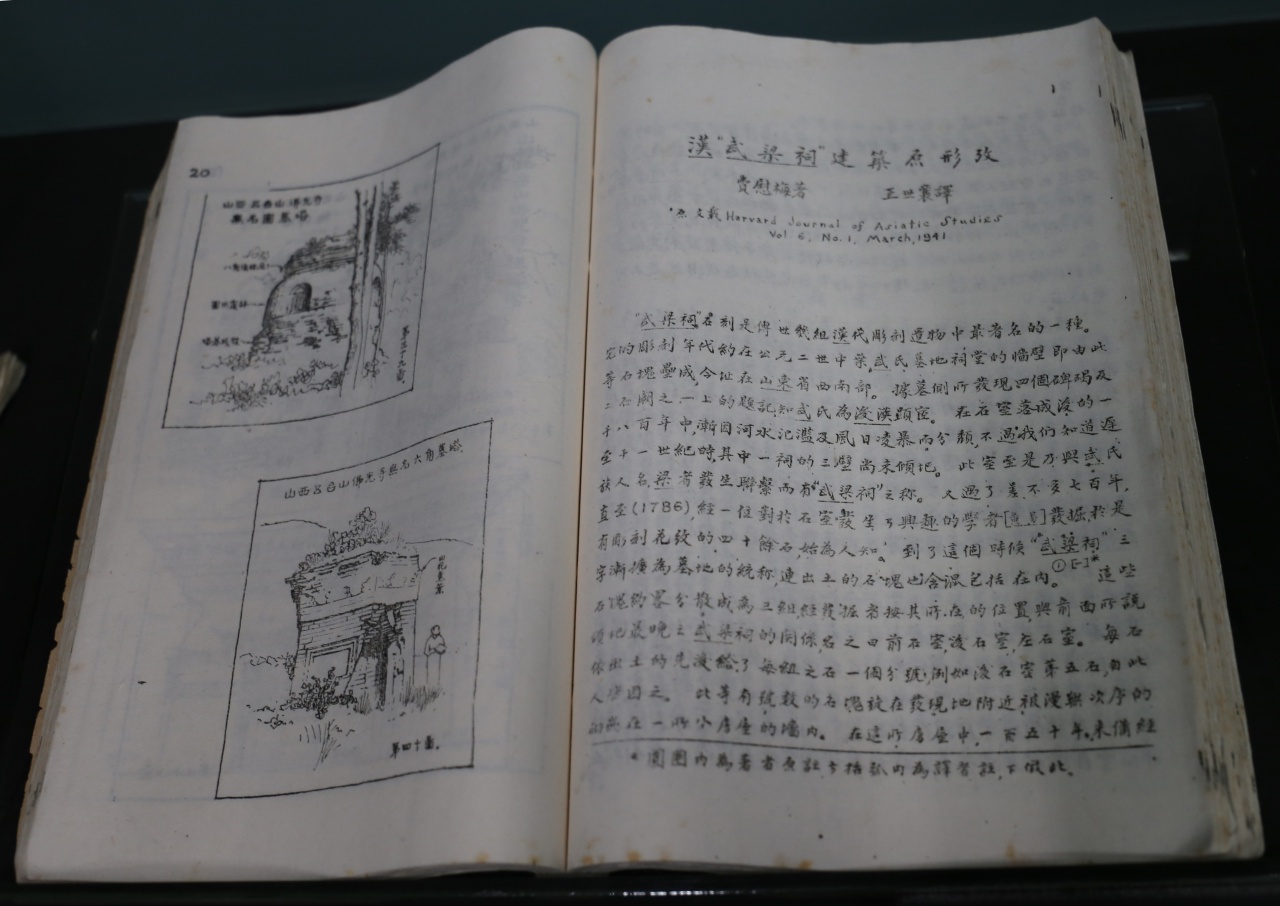 20
山西五台山佛光寺
無名圓墓塔
第三十九圖
山西五台山佛光寺無名六角墓塔
第四十圖。
1
漢"武梁祠"建築原形攷
費慰梅著 王世襄譯
*原文載 Harvard Journal of Asiatic Studies
Vol. 6, No. 1, March, 1941
"武梁祠"石刻是傳世幾組漢代彫刻遺物中最著名的一種。
它的彫刻年代約在公元二世中葉武氏墓地祠堂的牆壁即由此
等石塊疊成,今址在山東省西南部。據墓側所發現四個碑碣及
二石闕之一上的題記知武氏為後漢顯宦。在石室落成後的一
千八百年中,漸因河水氾濫及風日凌暴而分頹,不過我們知道遲
至十一世紀時,其中一祠的三壁尚未傾圮。此室至是乃與武氏
族人名梁者發生聯繫而有"武梁祠"之稱。又過了差不多七百年,
直至(1786),經一位對於石室發生了興趣的學者[黃易]發掘,於是
有彫刻花紋的四十餘石,始為人知。到了這個時候"武梁祠"三
字漸擴為墓地的統稱,連出土的石塊也含混包括在內。①[一]* 這些
石塊約畧分散成為三組,經發掘者按其所在的位置與前面所說
傾圮最晚之武梁祠的關係,名之曰前石室,後石室,左石室。每石
依出土的先後給了每組之石一個分號,例如後石室第五石,自此
人皆因之。此等有號數的石塊放在發現地附近被漫無次序的
砌在一所小房屋的牆內。在這所房屋中,一百五十年來僅經
*圓圈內為著者原註,方括弧內為譯者註,下倣此。